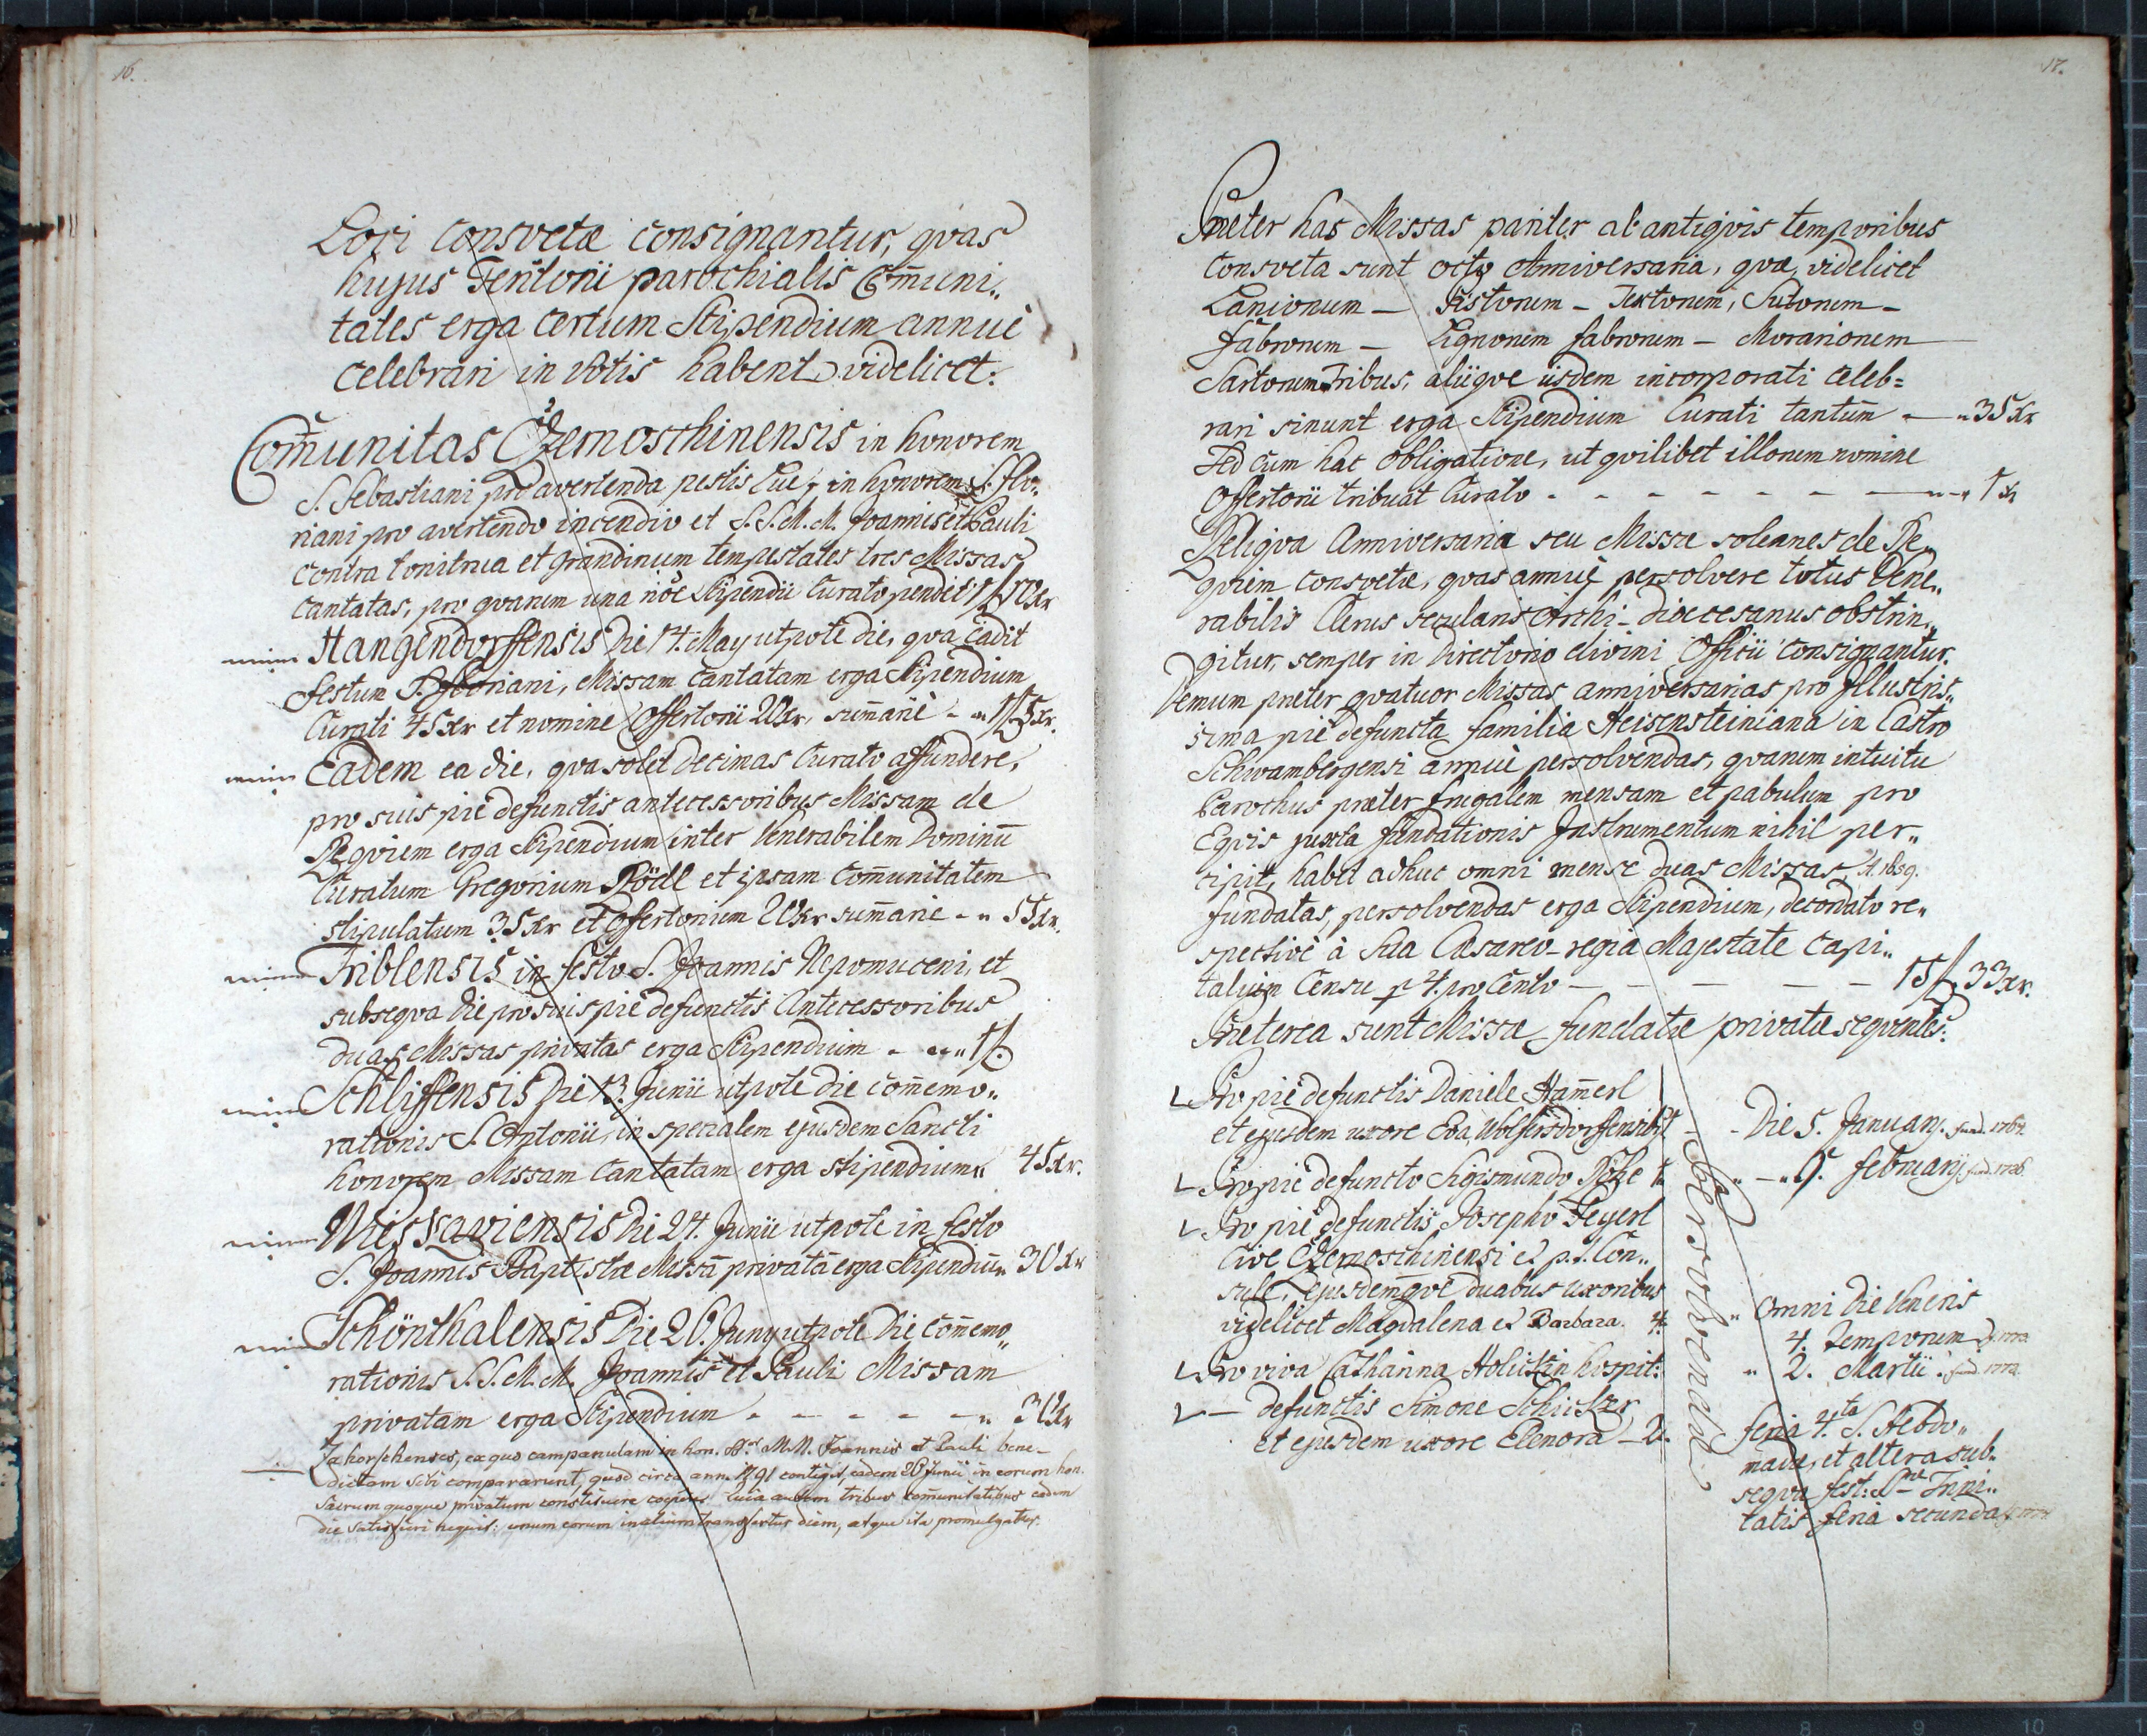 16.
Loci consvetæ consignantur, qvas
hujus Territorii parochialis Com̄uni„
tates erga certum Stipendium annuè
celebrari in votis habent videlicet:
Com̄unitas Czernoschinensis in honorem
S. Sebastiani pro avertenda pestis Lue, in honorem S. Flo„
riani pro avertendo incendio et S.S.M.M. Joannis et Pauli
contra tonitrua et grandinum tempestates tres Missas
cantatas, pro qvarum una nōe Stipendii Curato pendit 1f 10xr
Hangendorffensis Die 4. May utpote die, qva cadit
festum S. Floriani, Missam cantatam erga Stipendium
Curati 45xr et nomine Offertorii 20xr, sum̄ariè - „ 1f 5xr.
Eadem ea die, qva solet Decimas Curato affundere,
pro suis piè defunctis antecessoribus Missam de
Reqviem erga Stipendium inter Venerabilem Dominū
Curatum Gregorium Rödl et ipsam Com̄unitatem
stipulatum 35xr et offertorium 20xr sum̄arie - „ 55xr.
Triblensis in festo S. Joannis Nepomuceni, et
subseqva Die pro suis piè defunctis Antecessoribus
duas Missas privatas erga Stipendium - „ 1f.
Schliffensis Die 13. Junii utpote die com̄emo„
rationis S. Antonii, in specialem ejusdem Sancti
honorem Missam cantatam erga stipendium „ 45xr.
Wiessaviensis Die 24. Junii utpote in festo
S. Joannis Baptistæ Missā privatā erga Stipendiū „ 30xr
Schönthalensis Die 26. Juny utpote Die com̄emo„
rationis S.S.M.M. Joannis et Pauli Missam
privatam erga Stipendium - - - - - „ 30xr
Zahorschenses, ex quo campanulam in hon. SS. M.M. Joannis et Pauli bene-
dictam sibi compararunt, quod circa ann. 1791 contigit, eadem 26 Junii in eorum hon.
Sacrum quoque privatum constituere Quia autem tribus com̄unitatibus eadem
die satisfieri nequit: unum eorum in alium transfertur diem, atque ita promulgatur.
17.
Præter has Missas pariter ab antiqvis temporibus
consveta sunt octo Anniversaria, qvæ, videlicet
Lanionum — Pistorum — Textorum, Sutorum —
Fabrorum — Lignorum fabrorum — Murariorum
Sartorum Tribus, aliiqve iisdem incorporati celeb=
rari sinunt erga Stipendium Curati tantum̄ - — „ 35xr
Sed cum hac obligatione, ut qvilibet illorum nomine
Offertorii tribuat Curato - - - - - - — „ 1xr
Reliqva Anniversaria seu Missæ solennes de Re„
qviem consvetæ, qvas annuè persolvere totus Vene„
rabilis Clerus secularis Archi-Diœcesanus obstrin„
gitur, semper in Directorio divini Officii consignantur.
Demum præter qvatuor Missas anniversarias pro Illustris„
sima piè defuncta familia Heisensteiniana in Castro
Schwambergensi annuè persolvendas, qvarum intuitu
Parochus præter frugalem mensam et pabulum pro
Eqvis juxta fundationis Instrumentum nihil per„
cipit, habet adhuc omni mense duas Missas, A. 1859.
fundatas, persolvendas erga Stipendium, decordato re„
spectivè à Sua Cæsareo-regia Majestate Capi„
talium Censu p 4. pro Cento — — — — — 15f. 33xr.
Præterea sunt Missæ fundatæ privatæ seqventes:
Pro piè defunctis Daniele Ham̄erl
et ejusdem uxore Eva, Wolfersdorffensib. 1 - - Die 5. January. fund. 1767.
Pro piè defuncto Sigismundo 1. „ — „ 9. february fund. 1726
Pro piè defunctis Josepho Feyerl
Cive Czernoschinensi et p.t. Con„
sule, Ejusdem̄qve duabus uxoribus
videlicet Magdalena et Barbara. 4. „ omni Die Veneris
4. Temporum 1772
Pro viva Catharina hospit: „ 2. Martii. fund. 1772.
— defunctis Simone
et ejusdem uxore Elenora — 2. feria 4.ta S. Hebdo„
mada, et altera sub„
seqva fest: S.mæ Trini„
tatis feria secunda
Persolvenda